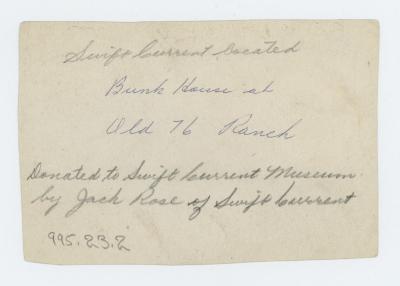 Swift Current Located
Bunk House at
Old 76 Ranch
Donated to Swift Current Museum.
by Jack Rose of Swift Current
995.23.2